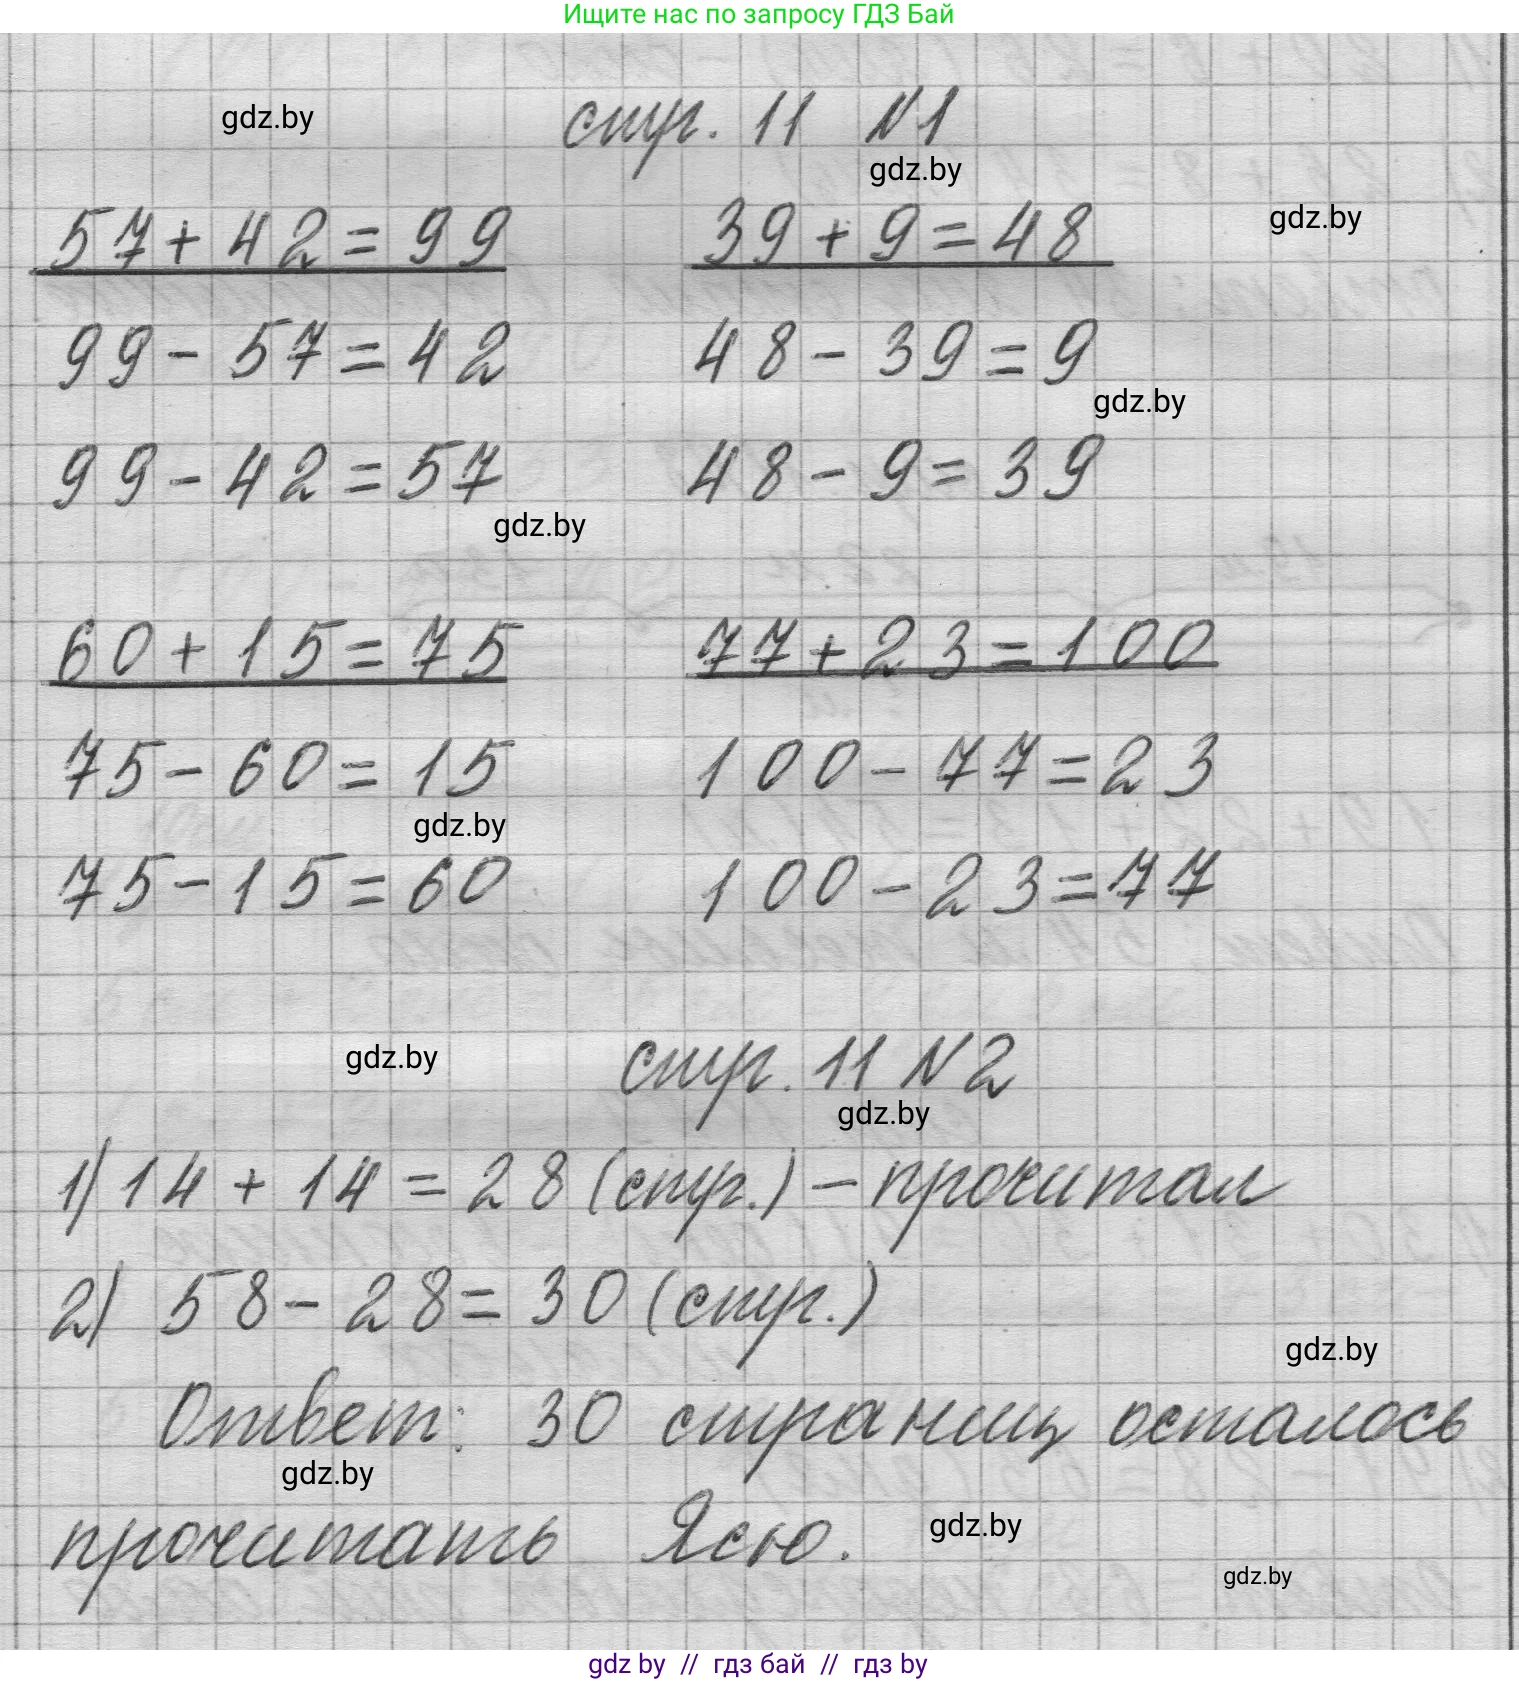 Ищите нас по запросу ГДЗ Бай
gdz.by
стр. 11 №1
gdz.by
57+42=99 39+9=48
gdz.by
99-57=42 48-39=9
gdz.by
99-42=57 48-9=39
gdz.by
60+15=75 77+23=100
75-60=15 100-77=23
gdz.by
75-15=60 100-23=77
gdz.by
стр. 11 №2
gdz.by
1) 14+14=28 (стр.) - прочитал
2) 58-28=30 (стр.)
gdz.by
Ответ: 30 страниц осталось
gdz.by
прочитать Ясю.
gdz.by
gdz.by
gdz by // гдз бай // гдз by